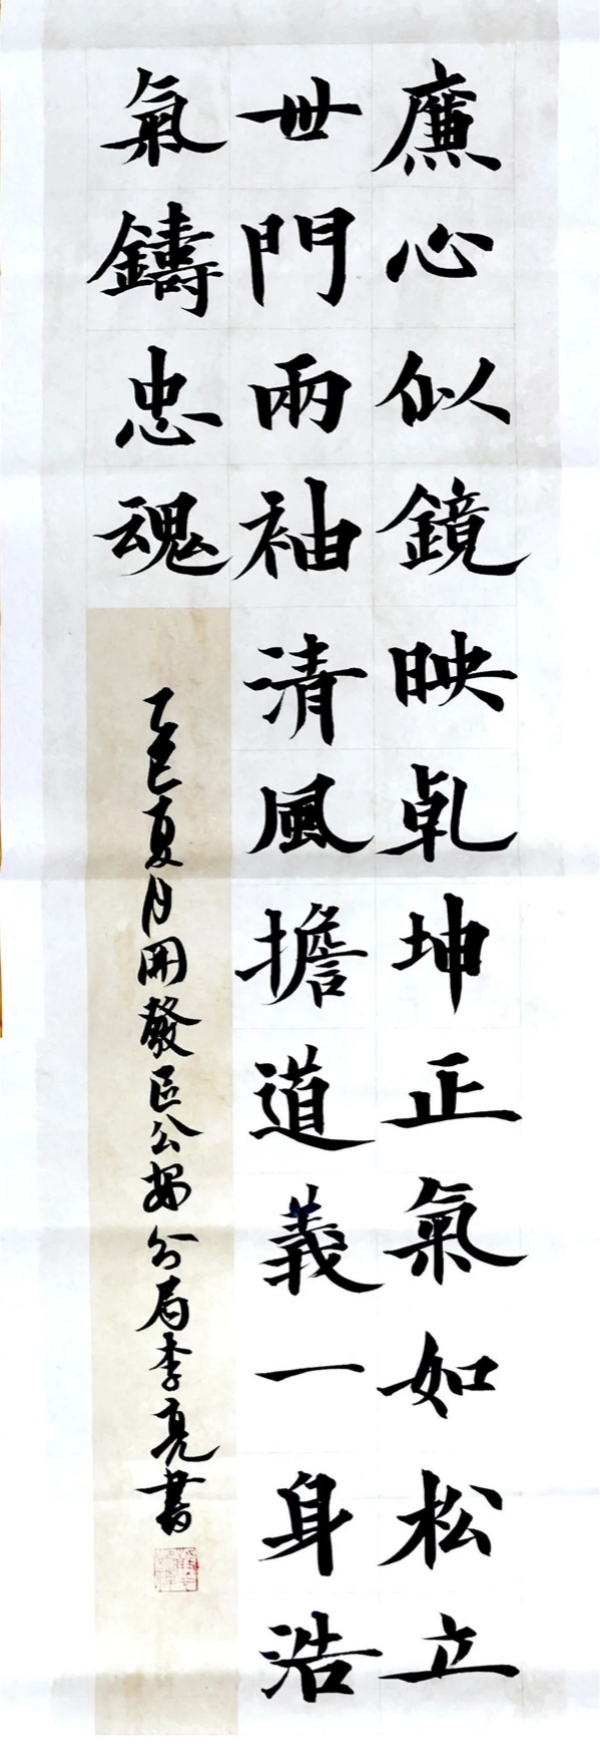 廉心似鏡映乾坤正氣如松立
世門兩袖清風擔道義一身浩
氣鑄忠魂
乙巳夏月開發區公安分局李亮書